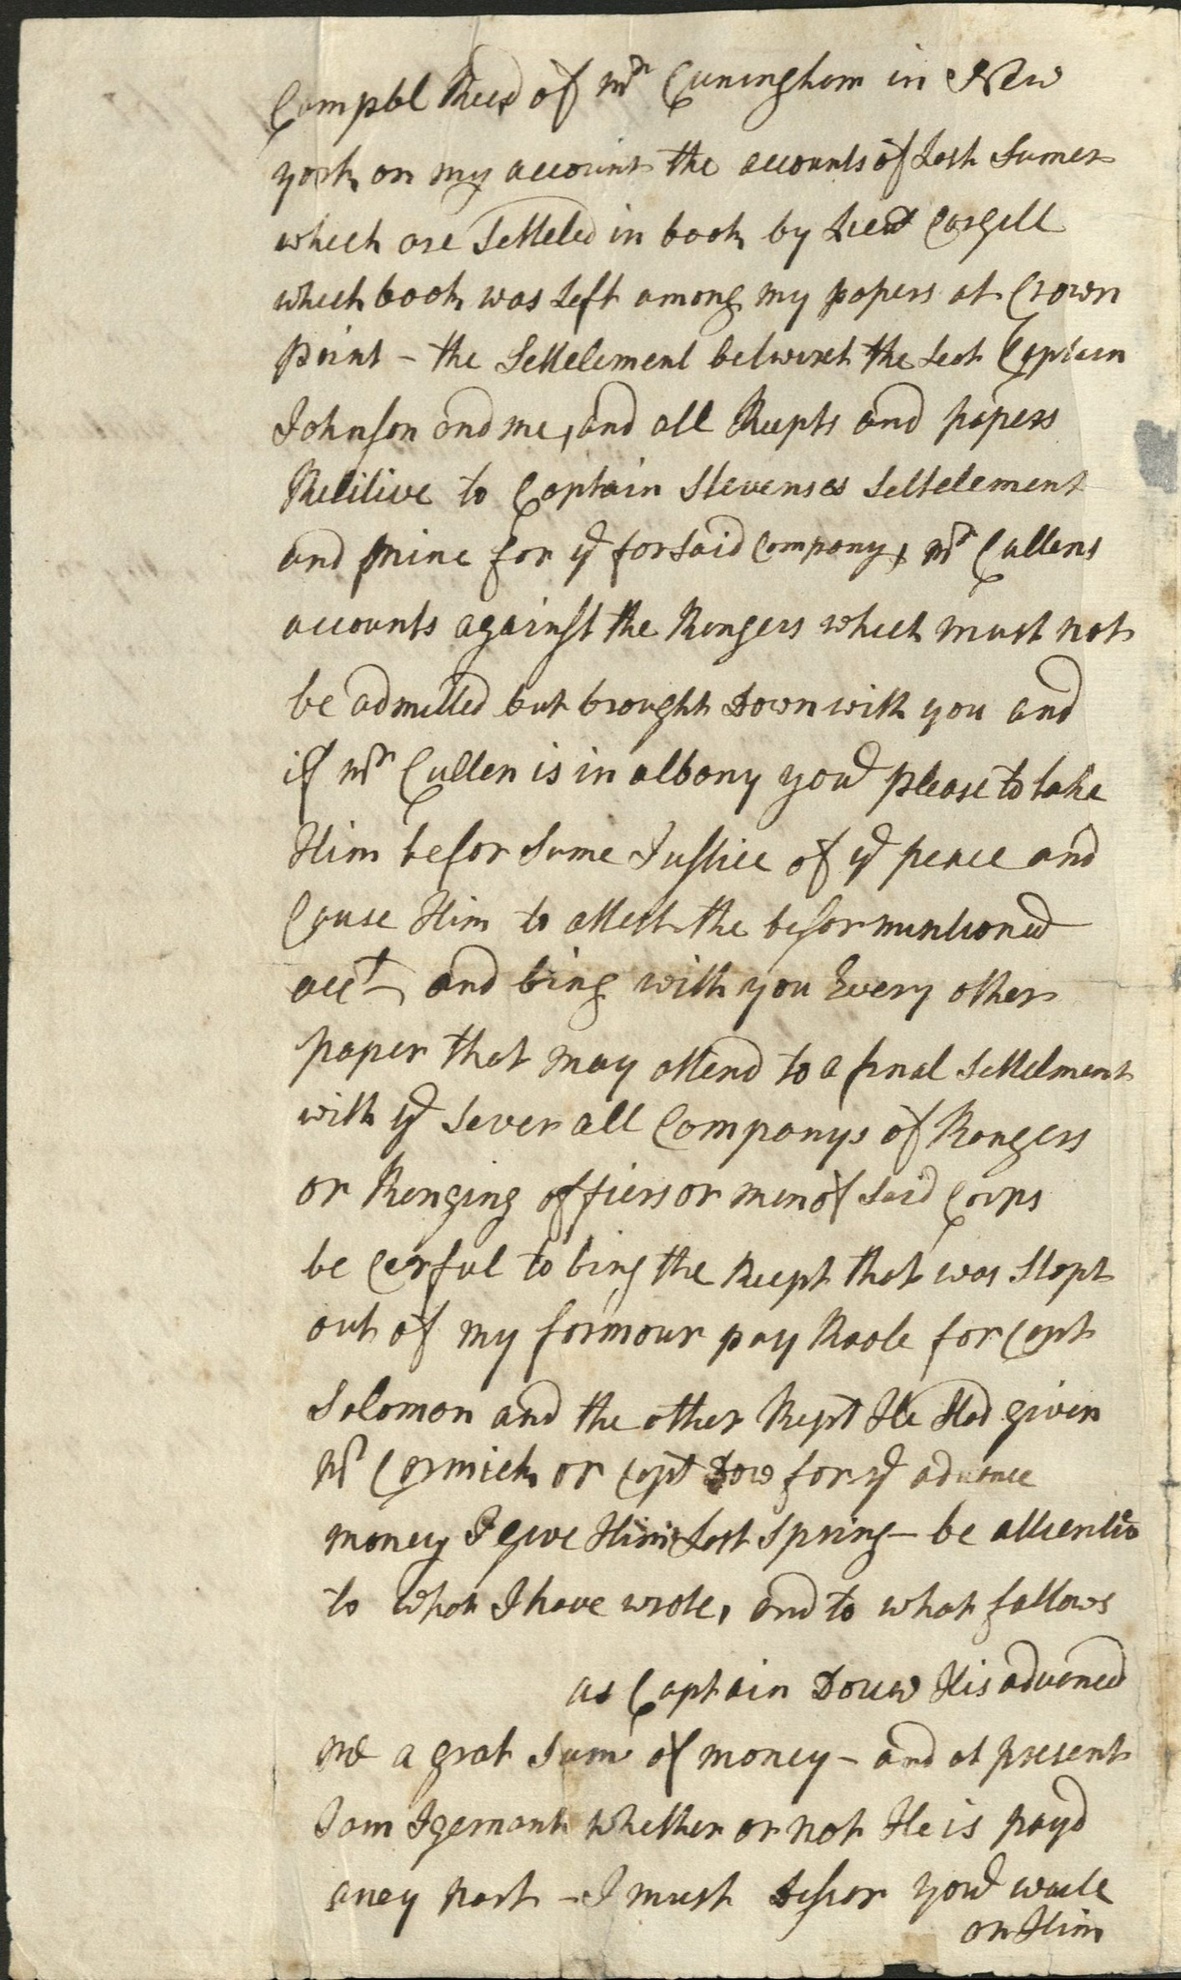 Campbl Recd of Mr Cuningham in New
york on my account the accounts of Last Sumer
which are Setteled in book by Lieut Cargill
which book was Left among my papers at Crown
Point – the Settelement betwixt the Leat Captain
Johnson and me, and all Recpts and papers
Relitive to Captain Stevenses Settelement
and mine for ye forsaid Company, Mr Cullens
accounts against the Rangers which must not
be admitted but brought Down with you and
if Mr Cullen is in albany youd please to take
Him befor Sume Justice of ye peace and
Cause Him to attest the befor mentioned
acct – and bring with you Every other
paper that may attend to a final Settelment
with ye Several Companys of Rangers
or Renging officers or men of Said Corps
be Cerful to bring the Recept that was Stopt
out of my formour pay Roole for Capt
Solomon and the other Rept He Had given
Mr Cormick or Capt Dow for ye advance
money I give Him Last Spring – be attentiv
to what I have wrote, and to what fallows
as Captain Douw His advanced
me a grat Sum of money – and at present
I am Igernant Whether or not He is payd
aney part – I must Desior youd waite
on Him